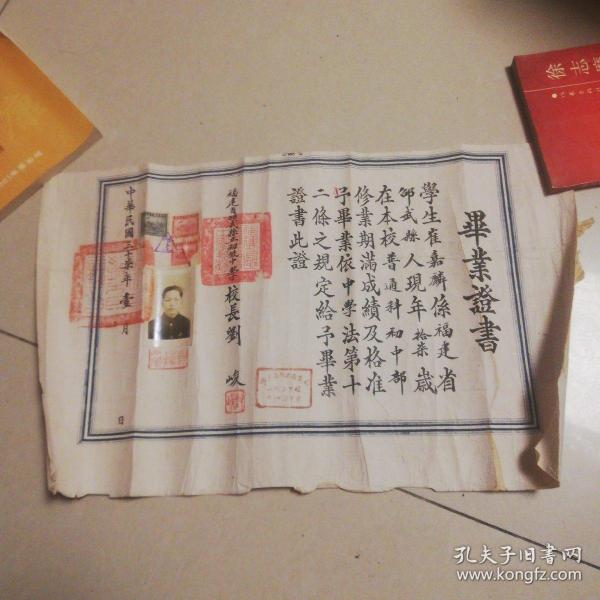 畢業證書
學生崔嘉麟係福建省
邵武縣人現年拾柒歲
在本校普通科初中部
修業期滿成績及格准
予畢業依中學法第十
二條之規定給予畢業
證書此證
校長劉峻
中華民國三十柒年壹月 日
徐志
孔夫子旧书网
www.kongfz.com